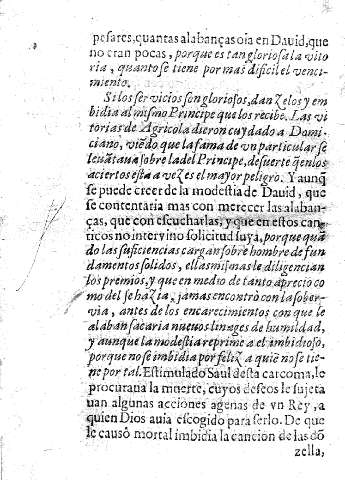 pesares, quantas alabanças oia en Dauid, que
no eran pocas, porque es tan gloriosa la vito
ria, quanto se tiene por mas dificil el venci-
miento.
Si los servicios son gloriosos, dan zelos y em
bidia al mismo Principe que los recibe. Las vi
torias de Agricola dieron cuydado a Domi-
ciano, viēdo que la fama de vn particular se
leuātaua sobre la del Principe, de suerte q̄ en los
aciertos està a vezes el mayor peligro. Y aunq̄
se puede creer de la modestia de Dauid, que
se contentaria mas con merecer las alaban-
ças, que con escucharlas, y que en estos can-
ticos no intervino solicitud suya, porque quā
do las suficiencias cargan sobre hombre de fun
damentos solidos, ellas mismas le diligencian
los premios, y que en medio de tanto aprecio co
mo del se hazia, jamas encontrò con la sober-
via, antes de los encarecimientos con que le
alaban sacaria nueuos linages de humildad,
y aunque la modestia reprime a el imbidioso,
porque no se imbidia por feliz a quiē no se tie-
ne por tal. Estimulado Saul desta carcoma, le
procuraua la muerte, cuyos deseos le sujeta
uan algunas acciones agenas de vn Rey, a
quien Dios auia escogido para serlo. De que
le causò mortal imbidia la cancion de las dō
zella,